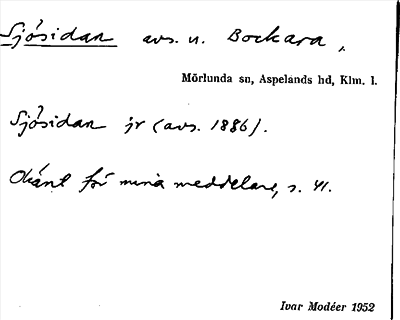 Sjösidan avs. u. Bockara,
Mörlunda sn, Aspelands hd, Klm. l.
Sjösidan jr (avs. 1886).
Okänt för mina meddelare, s. 41.
Ivar Modéer 1952